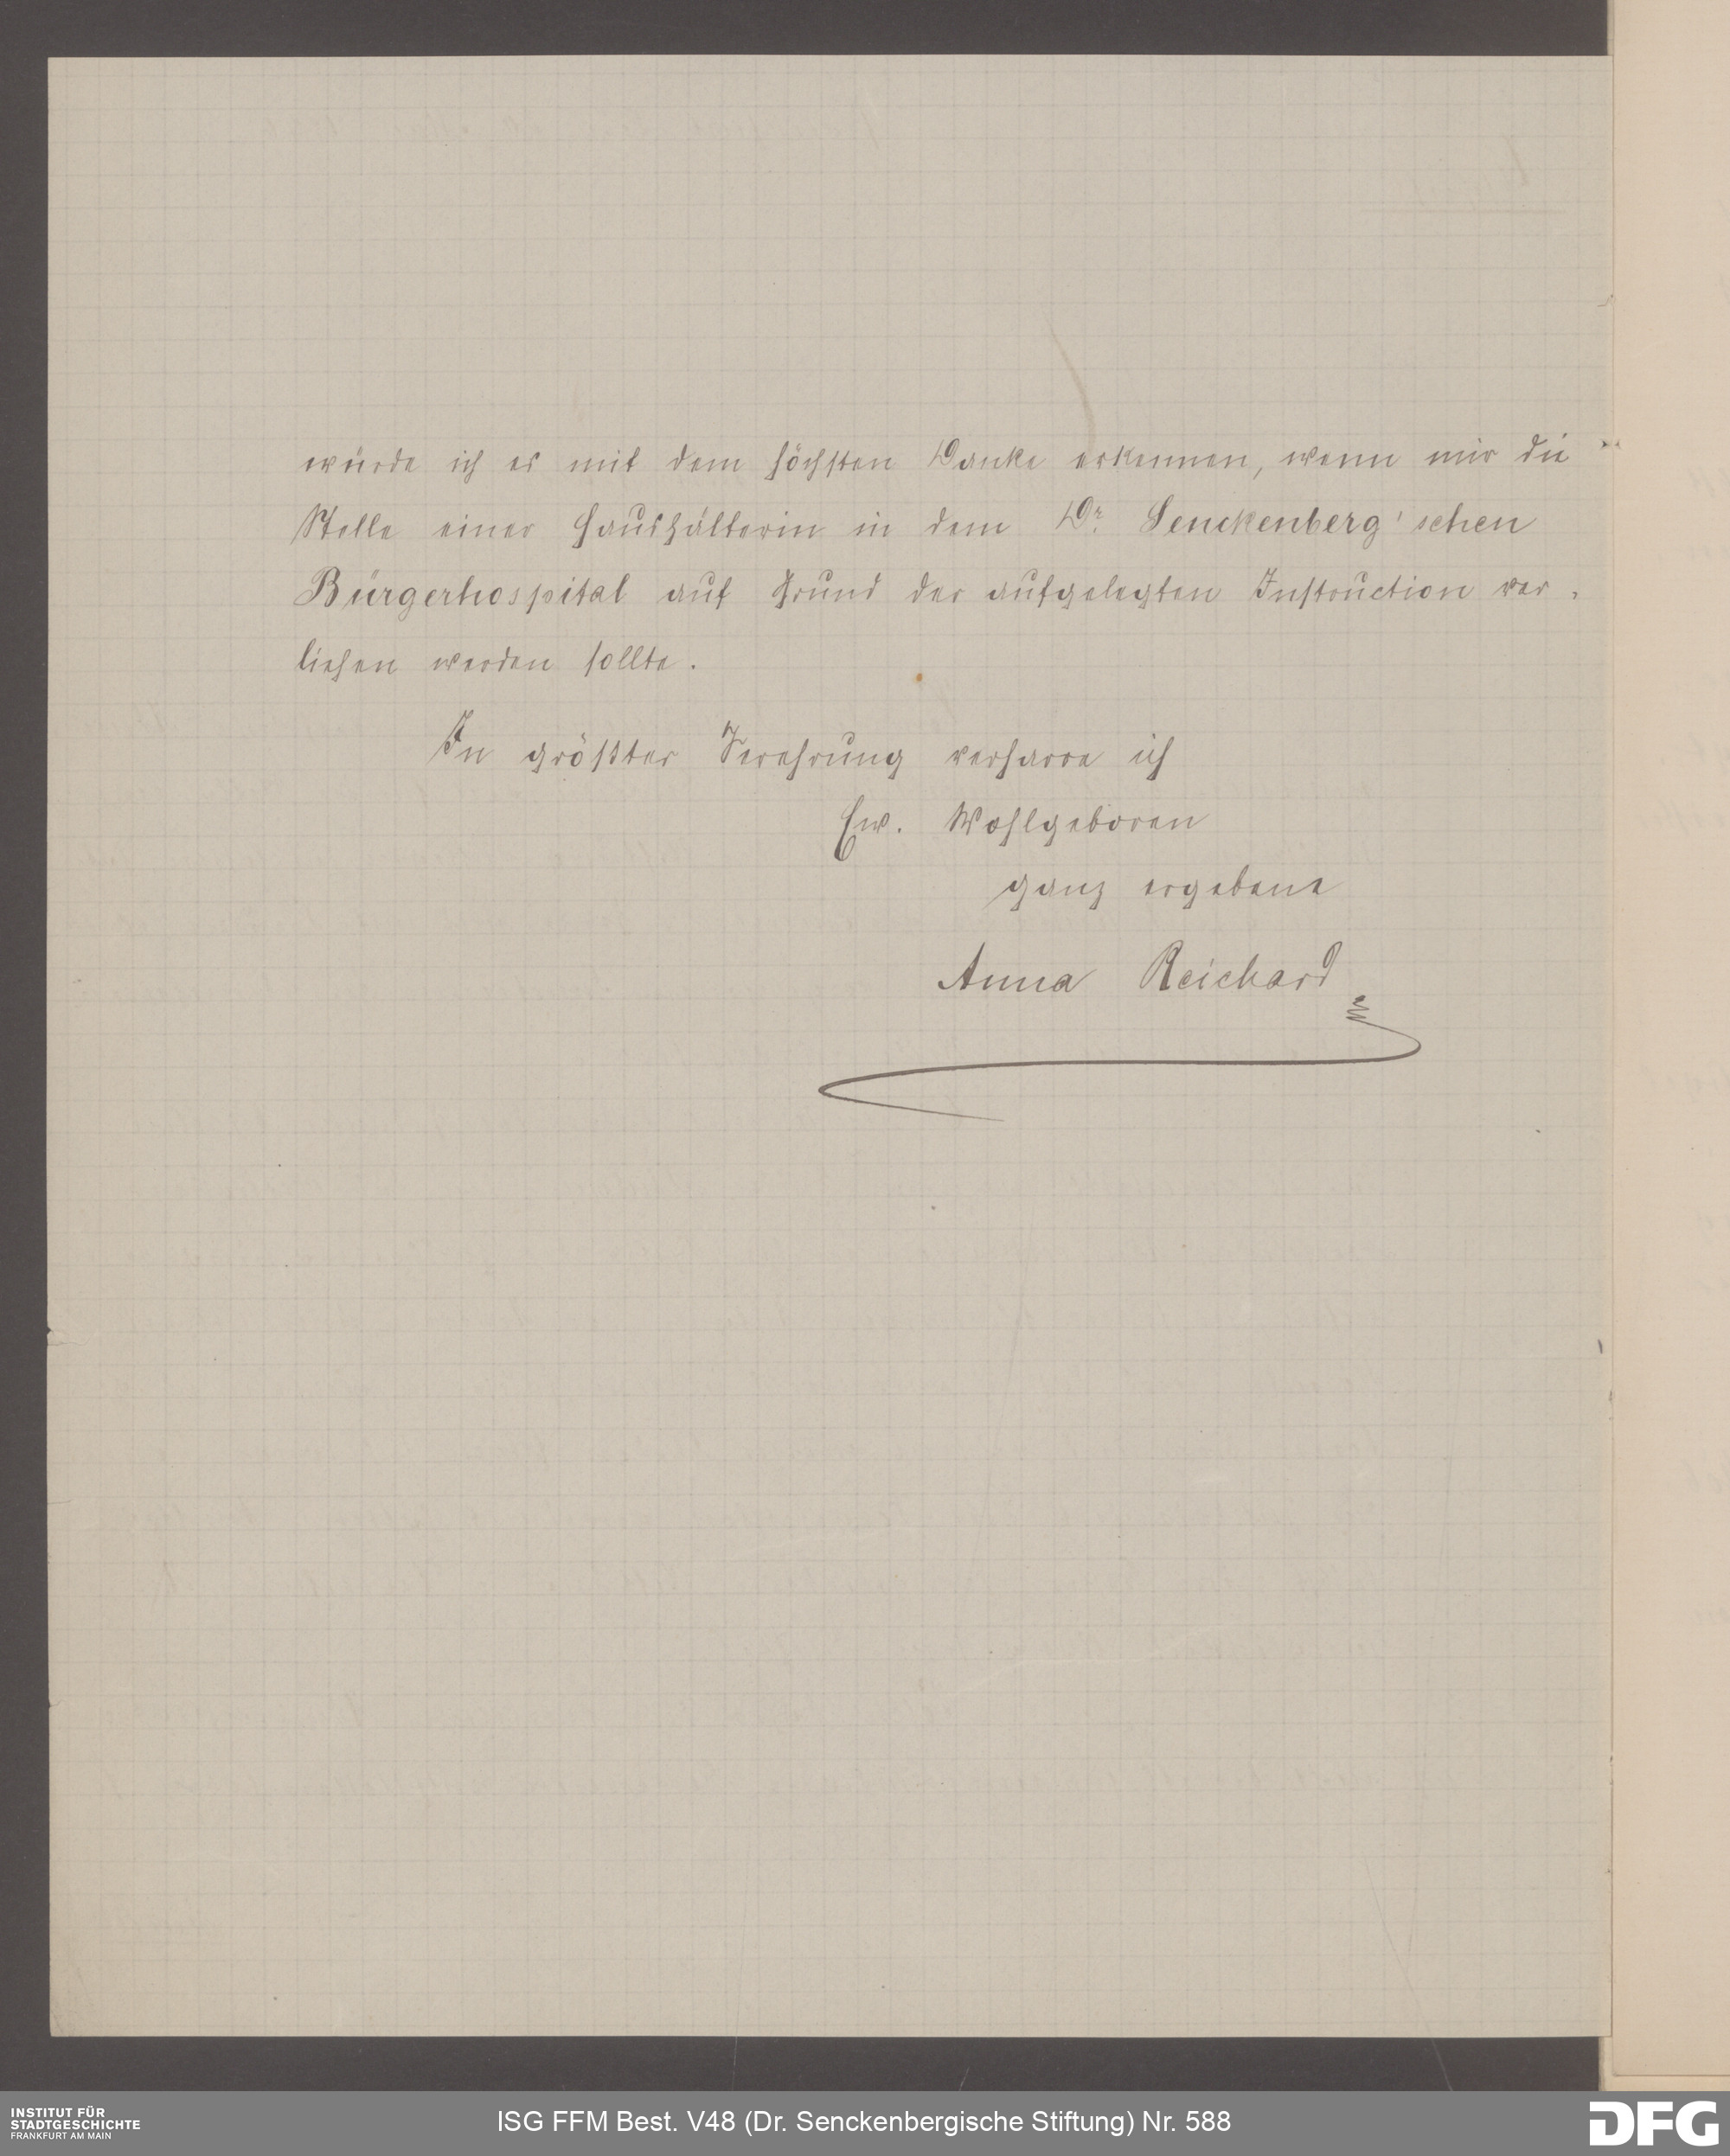 würde ich es mit dem höchsten Danke erkennen, wenn mir die
Stelle einer Haushälterin in dem Dr. Senckenberg'schen
Bürgerhospital auf Grund der aufgelegten Instruction ver-
liehen werden sollte.
In größter Verehrung verharre ich
Ew. Wohlgeboren
ganz ergebene
Anna Reichard
INSTITUT FÜR
STADTGESCHICHTE
FRANKFURT AM MAIN
ISG FFM Best. V48 (Dr. Senckenbergische Stiftung) Nr. 588
DFG